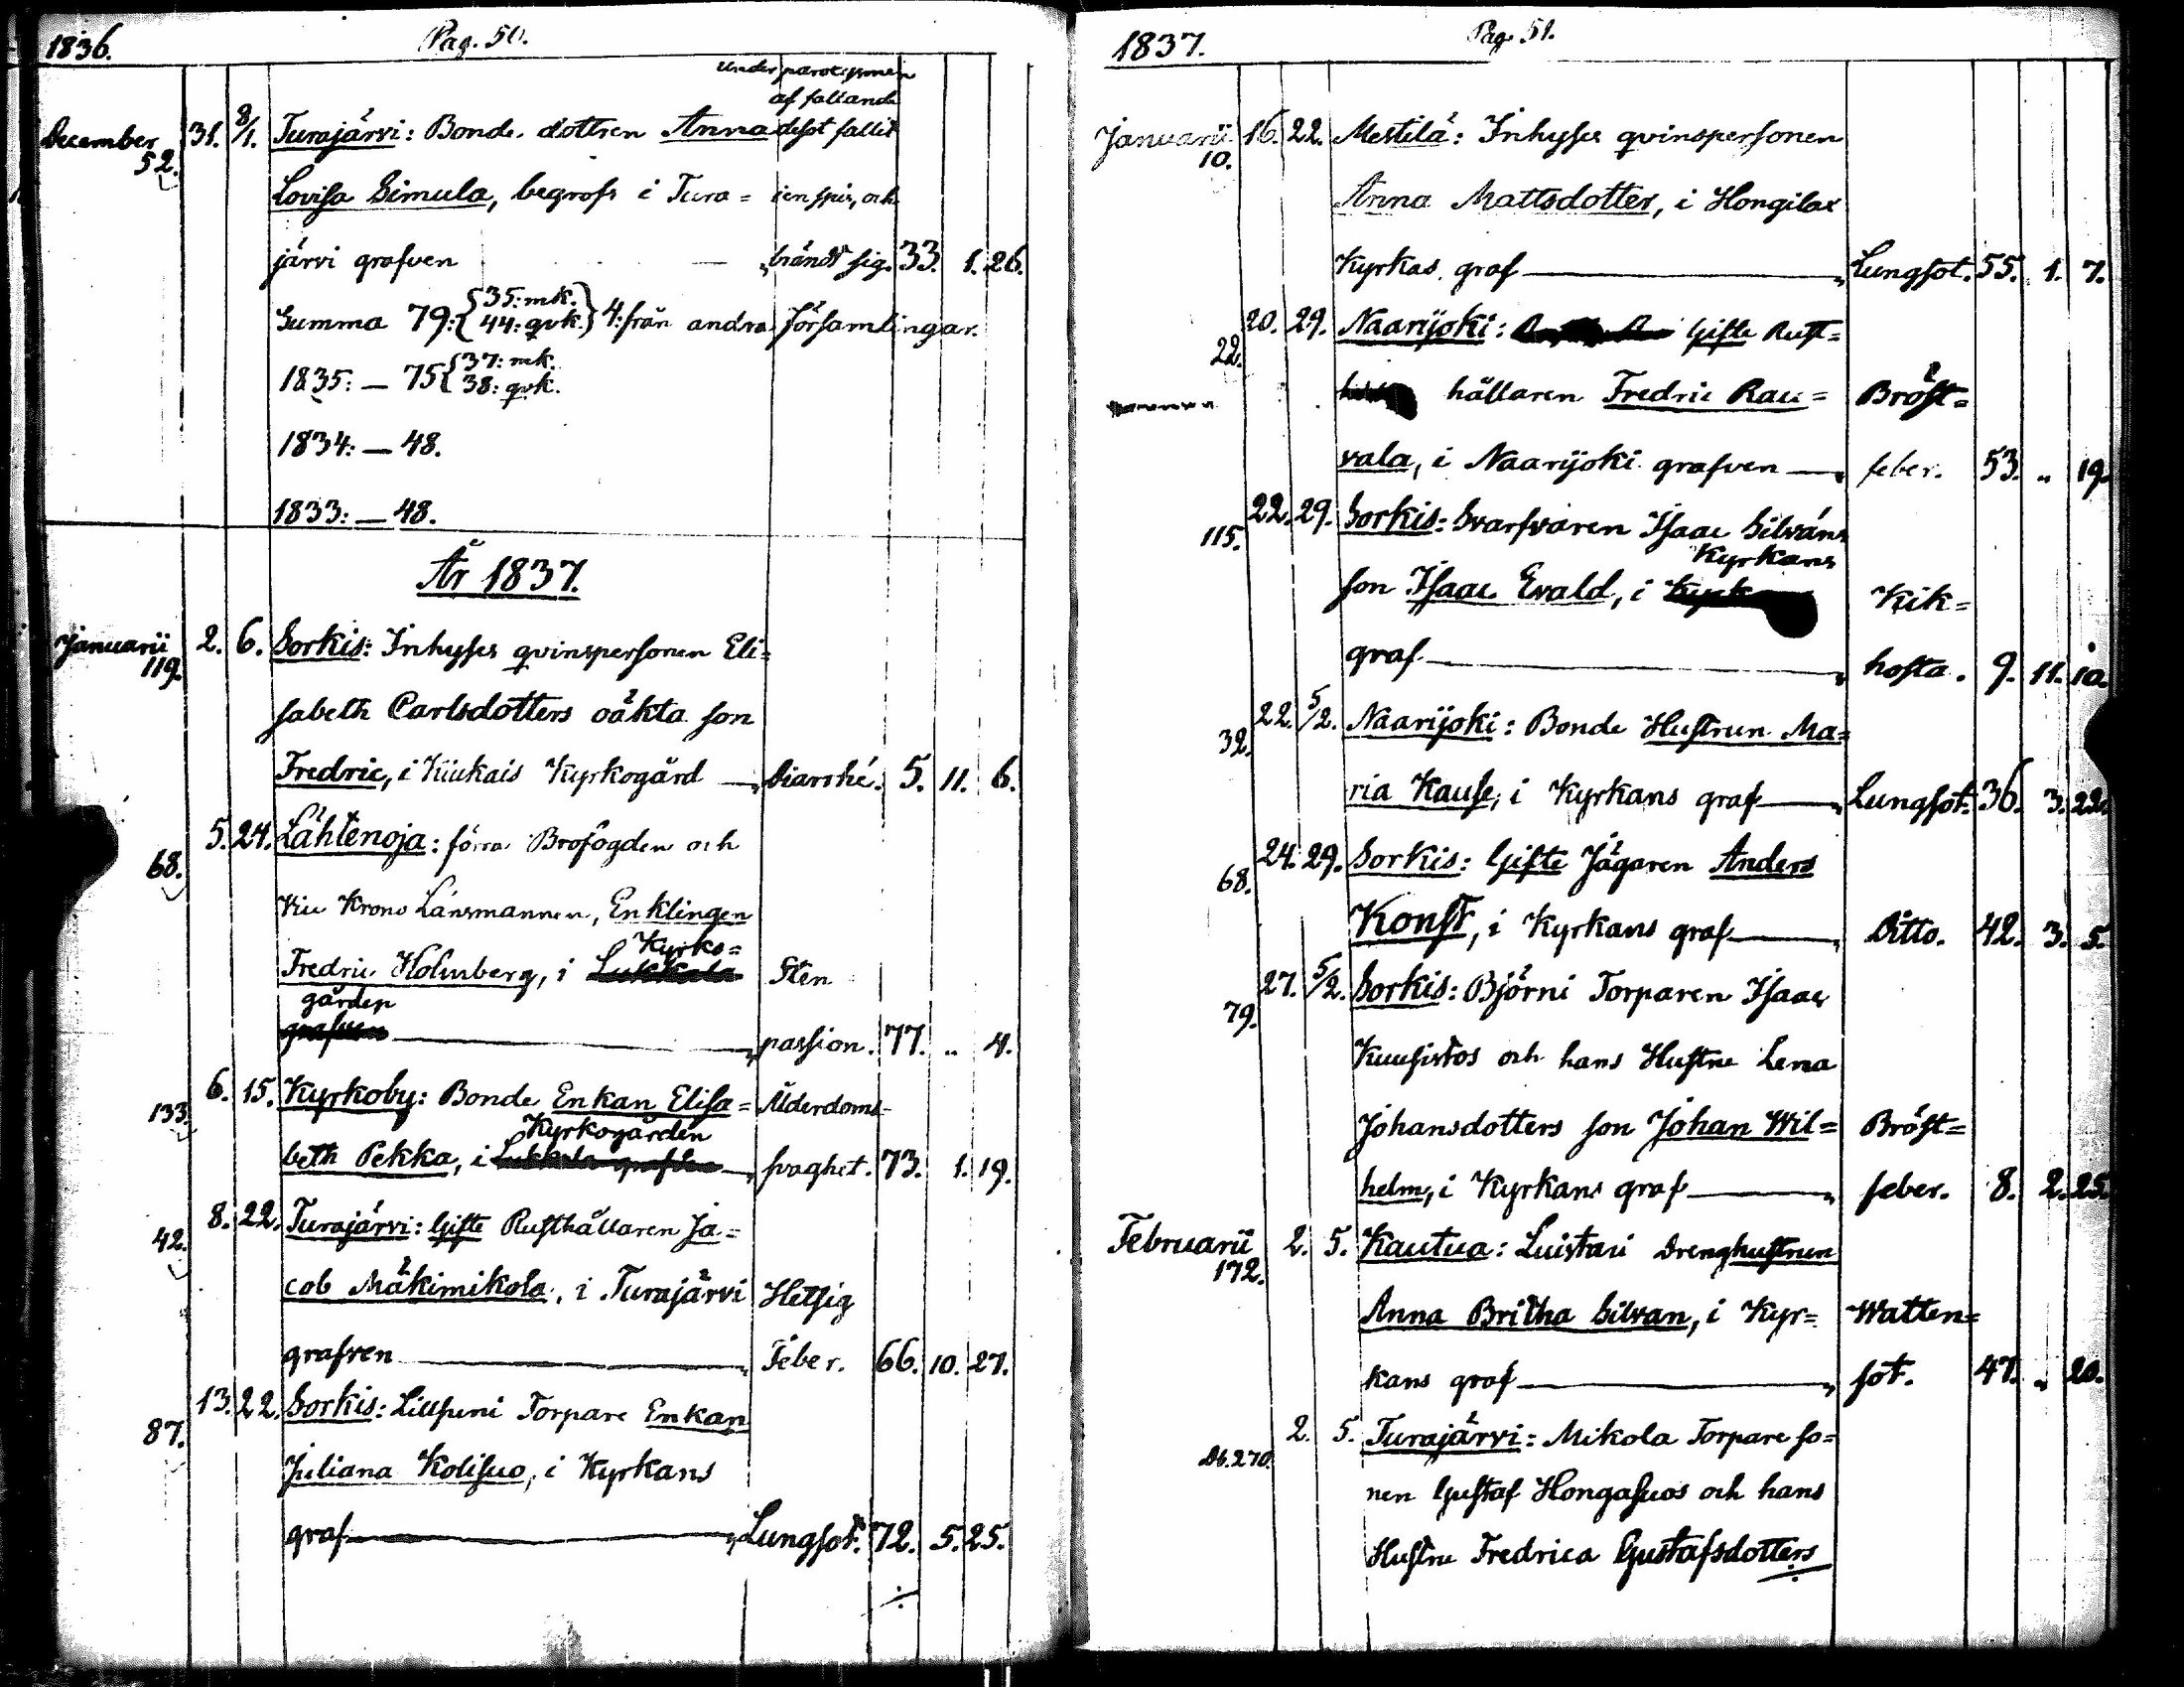 1836. Pag. 50.
under paroxysmen
af fallande
December 31. 8/1. Turajärvi: Bonde dottren Anna desot fallit
52.
Lovisa Simula, begrofs i Tura= i en spis, och
järvi grafven — brändt sig. 33. 1. 26.
Summa 79: {35: mk. 44: qvk.} 4: från andra Församlingar.
1835: — 75 {37: mk. 38: qvk.
1834: — 48.
1833: — 48.
År 1837.
Januarii 2. 6. Sorkis: Inhyses qvinspersonen Eli=
119.
sabeth Carlsdotters oäkta son
Fredric, i Kiukais Kyrkogård — Diarrhé. 5. 11. 6.
5. 24. Lähtenoja: förra Brofogden och
68.
Vice Krono Länsmannen, Enklingen
Kyrko=
Fredric Holmberg, i Lukkala Sten
gården
grafven — passion. 77. .. 4.
6. 15. Kyrkoby: Bonde Enkan Elisa= Ålderdoms-
133.
Kyrkogården
beth Pekka, i Lukkala grafven — svaghet. 73. 1. 19.
8. 22. Turajärvi: Gifte Rusthållaren Ja=
42.
cob Mäkimikola, i Turajärvi Hetsig
grafven — Feber. 66. 10. 27.
13. 22. Sorkis: Lillsuni Torpare Enkan
87.
Juliana Kolisuo, i Kyrkans
graf — Lungsot. 72. 5. 25.
1837. Pag. 51.
Januarii 16. 22. Mestilä: Inhyses qvinspersonen
10.
Anna Mattsdotter, i Hongilax
Kyrkas graf — Lungsot. 55. 1. 7.
20. 29. Naarijoki: Gifte Rust=
22.
hållaren Fredric Rau= Bröst=
vala, i Naarijoki grafven — feber. 53. .. 19.
22. 29. Sorkis: Svarfvaren Isaac Silváns
115.
Kyrkans
son Isaac Evald, i Kyrk Kik=
graf — hosta. 9. 11. 10.
22. 5/2. Naarijoki: Bonde Hustrun Ma=
32.
ria Kause, i Kyrkans graf — Lungsot. 36. 3. 22.
24. 29. Sorkis: Gifte Jägaren Anders
68.
Konst, i Kyrkans graf — Ditto. 42. 3. 5.
27. 5/2. Sorkis: Björni Torparen Isaac
79.
Kuusistos och hans Hustru Lena
Johansdotters son Johan Wil= Bröst=
helm, i Kyrkans graf — feber. 8. 2. 25.
Februarii 2. 5. Kautua: Luistari Drenghustrun
172.
Anna Britha Silvan, i Kyr= Watten=
kans graf — sot. 47. .. 20.
2. 5. Turajärvi: Mikola Torpare so=
Db. 270.
nen Gustaf Hongasuos och hans
Hustru Fredrica Gustafsdotters